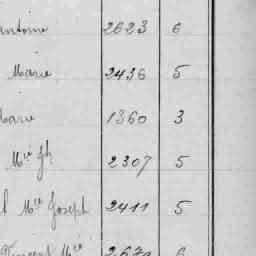 antoine 2623 6
Marie 2436 5
Marie 1360 3
Mie Jh 2307 5
Mce Joseph 2411 5
Vincent Mce 2670 6